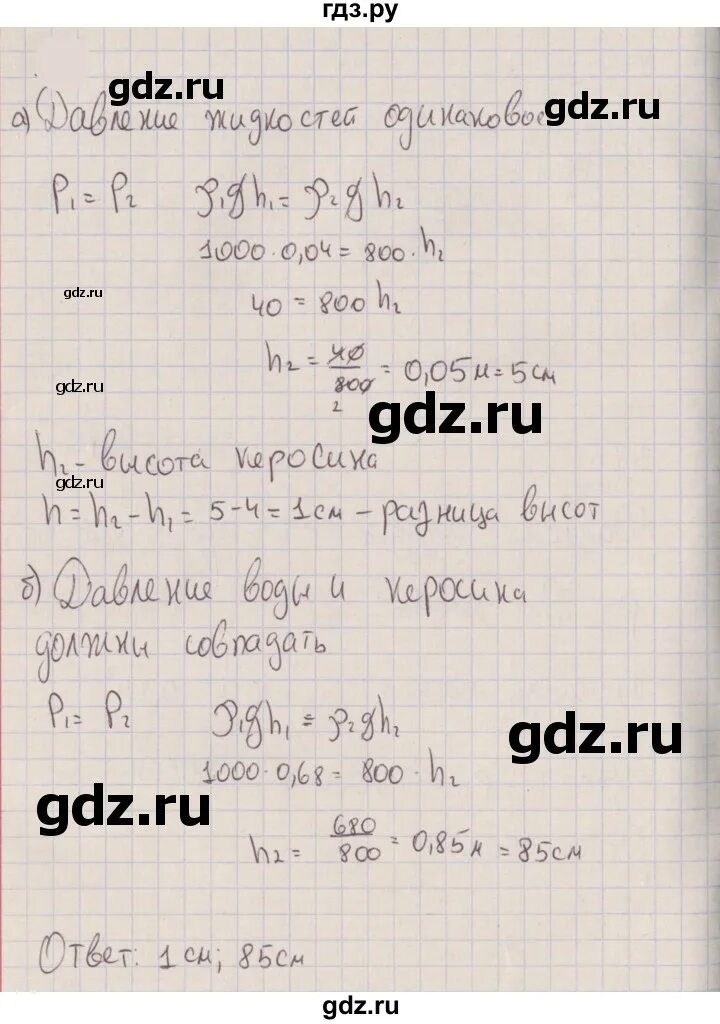 гдз.ру
gdz.ru
а) Давление жидкостей одинаковое
gdz.ru
P₁ = P₂ ρ₁gh₁ = ρ₂gh₂
1000·0,04 = 800·h₂
gdz.ru
40 = 800 h₂
h₂ = 40/800 = 0,05м = 5см
2
gdz.ru
gdz.ru
h₂ - высота керосина
gdz.ru
h = h₂ - h₁ = 5-4 = 1см - разница высот
б) Давление воды и керосина
должны совпадать
P₁ = P₂ ρ₁gh₁ = ρ₂gh₂
gdz.ru
1000·0,68 = 800·h₂
gdz.ru
h₂ = 680/800 = 0,85м = 85см
Ответ: 1см; 85см
gdz.ru